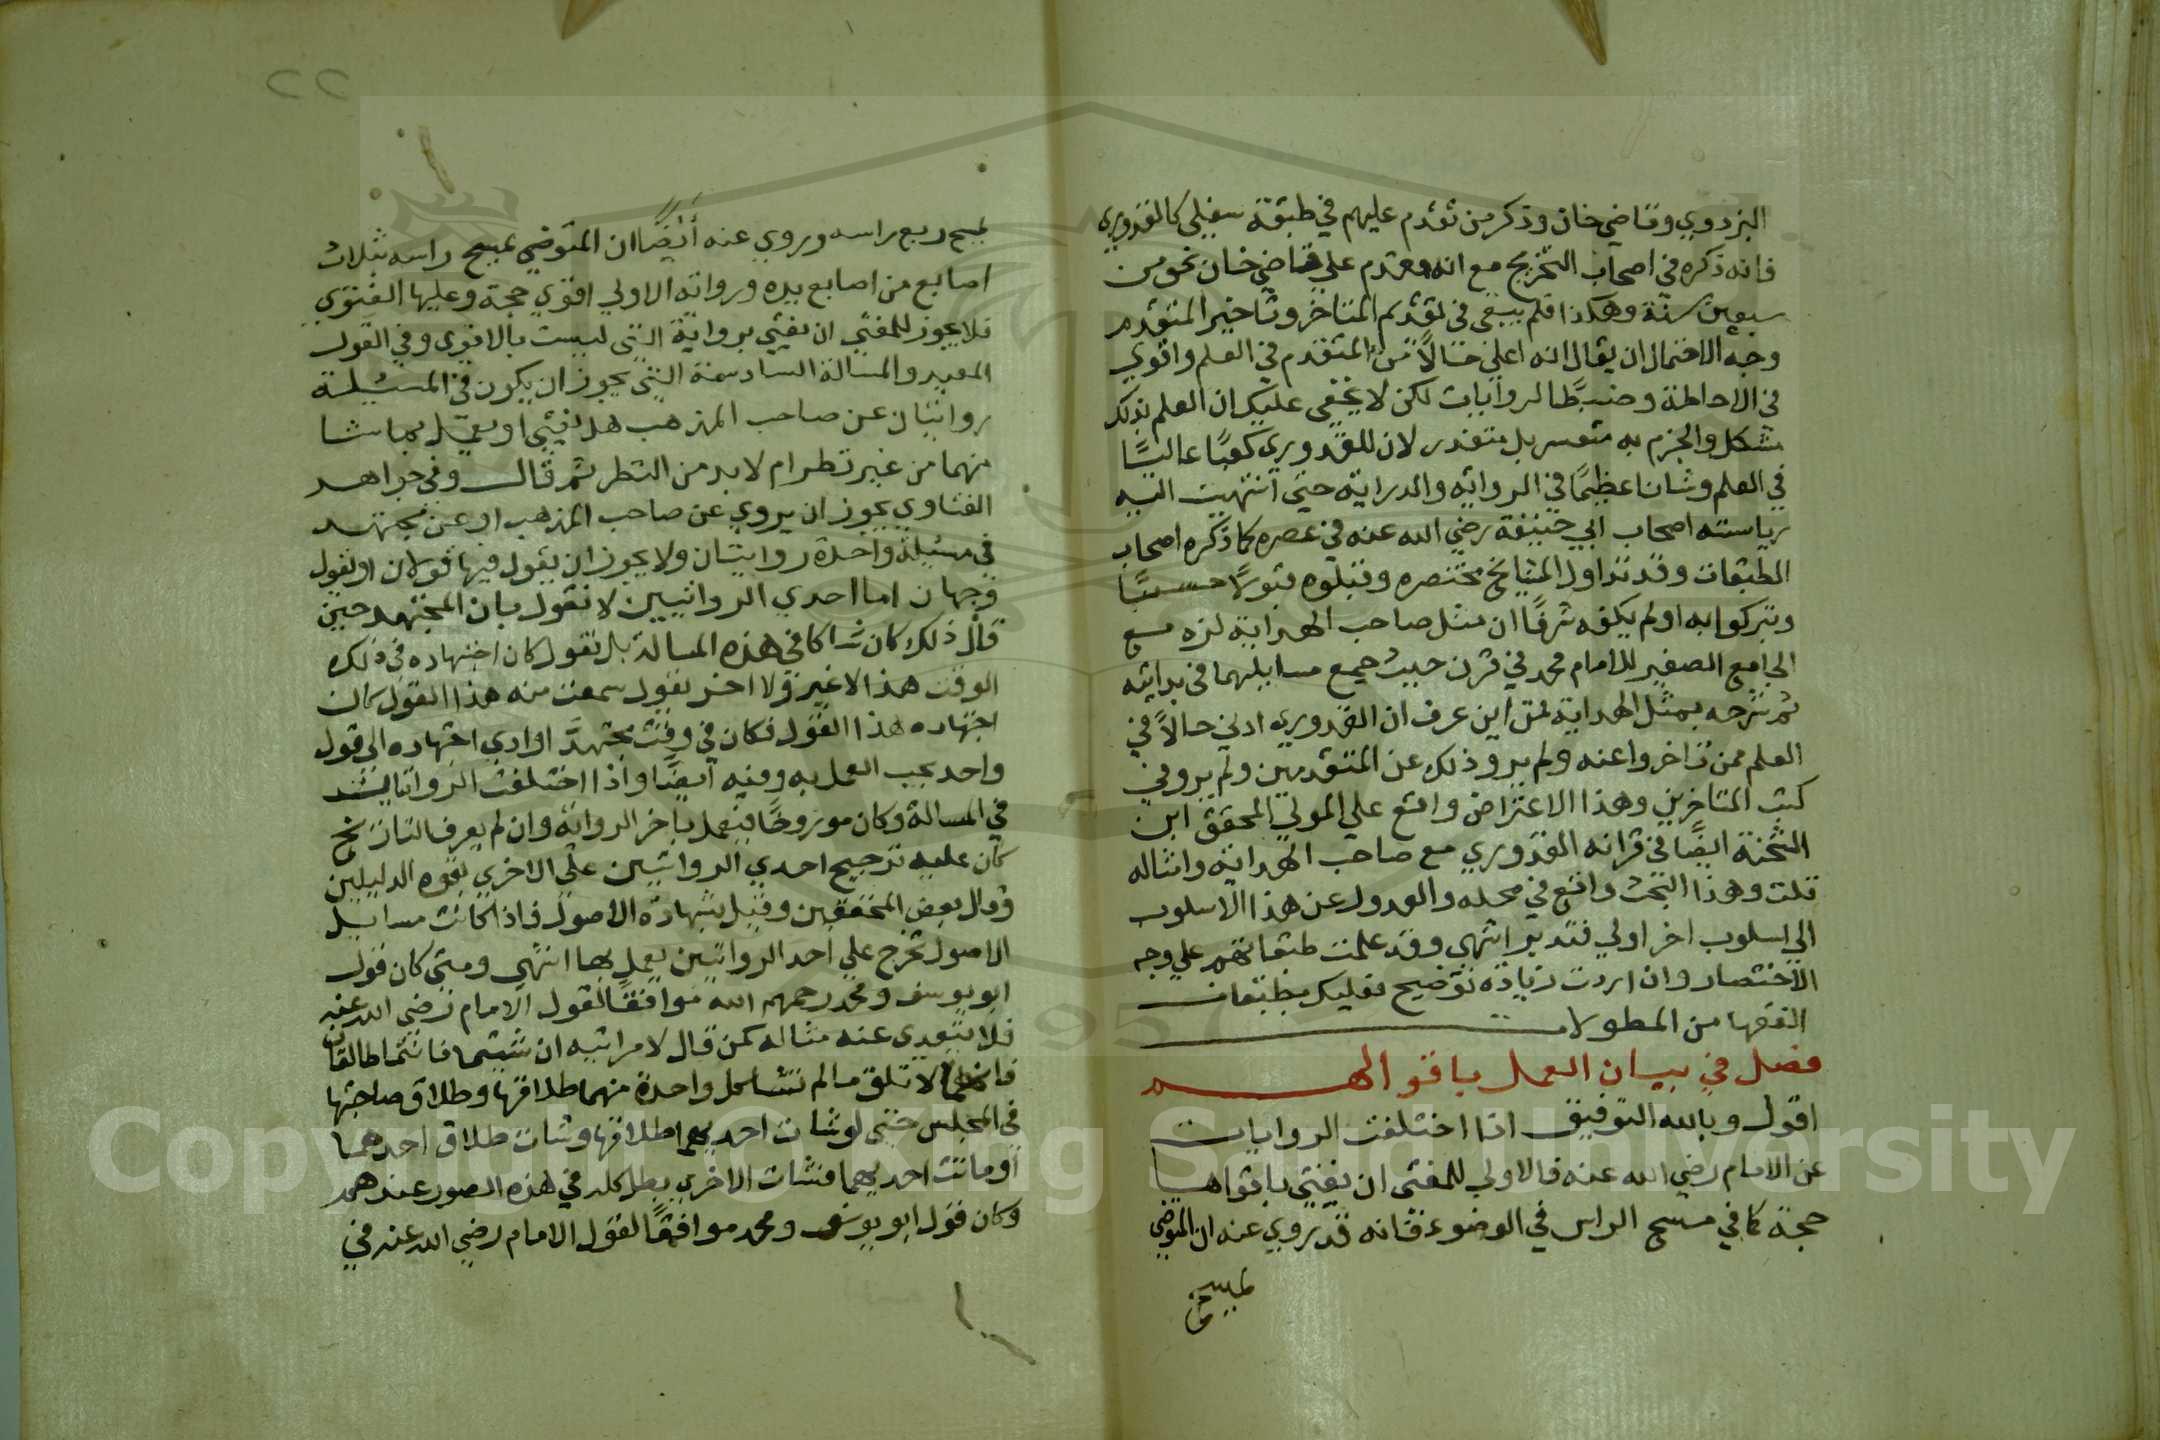 البزدوي وقاضي خان وذكر من تقدم عليهم في طبقة سفلي كالقدوري
فانه ذكره في اصحاب التخريج مع انه مقدم علي قاضي خان نحو من
سبعين سنة وهكذا فلم يبقي في تقديم المتاخر وتاخير المتقدم
وجه الاحتمال ان يقال انه اعلي حالاً من المتقدم في العلم واقوي
في الاحاطة وضبطاً لروايات لكن لا يخفي عليك ان العلم بذلك
مشكل والجزم به متعسر بل متعذر لان للقدوري كعبًا عاليًا
في العلم وشانا عظيمًا في الرواية والدراية حتي انتهيت اليه
رياسته اصحاب ابي حنيفة رضي الله عنه في عصره كما ذكره اصحاب
الطبقات وقد تداول المشايخ مختصره وقبلوه قبولاً حسنًا
وتبركوا به اولم يكفه شرفًا ان مثل صاحب الهداية لزه مع
الجامع الصغير للامام محمد في قرن حيث جمع مسايلهما في بدايته
ثم شرحه بمثل الهداية فمن اين عرف ان القدوري ادني حالاً في
العلم ممن تاخروا عنه ولم يرو ذلك عن المتقدمين ولم يرو في
كتب المتاخرين وهذا الاعتراض واقع علي المولي المحقق ابن
الشحنة ايضًا في قرانه القدوري مع صاحب الهداية وامثاله
قلت وهذا البحث واقع في محله والعدول عن هذا الاسلوب
الي اسلوب اخر اولي فتدبر انتهي وقد علمت طبقاتهم علي وجه
الاختصار وان اردت زيادة توضيح فعليك بطبقات
الفقها من المطولات
فصل في بيان العمل باقوالهم
اقول وبالله التوفيق اذا اختلفت الروايات
عن الامام رضي الله عنه فالاولي للمفتي ان يفتي باقواها
حجة كما في مسح الراس في الوضوء فانه قد روي عنه ان المتوضي
يمسح
٢٢
يمسح ربع راسه وروي عنه أيضًا ان المتوضي يمسح راسه بثلاث
اصابع من اصابع يده ورواته الاولي اقوي حجة وعليها الفتوي
فلا يجوز للمفتي ان يفتي برواية التي ليست بالاقوي وفي القول
المعيد والمسالة السادسة التي يجوز ان يكون في المسيلة
روايتان عن صاحب المذهب هل يفتي او يعمل بما شا
منهما من غير نظر ام لا بد من النظر ثم قال وفي جواهر
الفتاوي يجوز ان يروي عن صاحب المذهب او عن مجتهد
في مسيلة واحدة روايتان ولا يجوز ان يقول فيها قولان او نقول
وجهان اما احدي الروايتين لا نقول بان المجتهد حين
قال ذلك كان شاكا في هذه المسالة بل نقول كان اجتهاده في ذلك
الوقت هذا لا غير ولا اخر يقول سمعت منه هذا القول كان
اجتهاده هذا القول فكان في وقت مجتهدً او ادي اجتهاده الي قول
واحد يجب العمل به وفيه ايضًا واذا اختلفت الروايات
في المسالة وكان مورخًا فيعمل باخر الرواية وان لم يعرف التاريخ
كان عليه ترجيح احدي الروايتين علي الاخري بقوة الدليلين
وقال بعض المحققين وقيل بشهادة الاصول فاذا كانت مسايل
الاصول تخرج علي احد الروايتين يعمل بها انتهي ومتي كان قول
ابو يوسف ومحمد رحمهم الله موافقًا لقول الامام رضي الله عنه
فلا يتعدي عنه مثاله كمن قال لامراتيه ان شيتما فانتما طالقان
فانهما لا تطلق مالم تشا كل واحدة منهما طلاقها وطلاق صاحبتها
في المجلس حتي لو شات احديهما طلاقها وشات طلاق احدهما
او ماتت احديهما فشات الاخري بطل كله في هذه الصور عندهم
وكان قول ابو يوسف ومحمد موافقًا لقول الامام رضي الله عنه في
Copyright © King Saud University